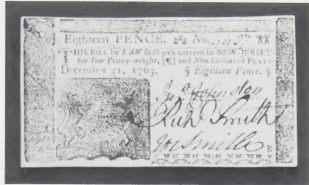 Eighteen PENCE. No.
THIS BILL by LAW shall pass current in NEW-JERSEY
for Four Penny-weight, and Nine Grains of PLATE
December 31, 1763. § Eigteen Pence. §
Johnston
Rich Smith
Jos Smith
B